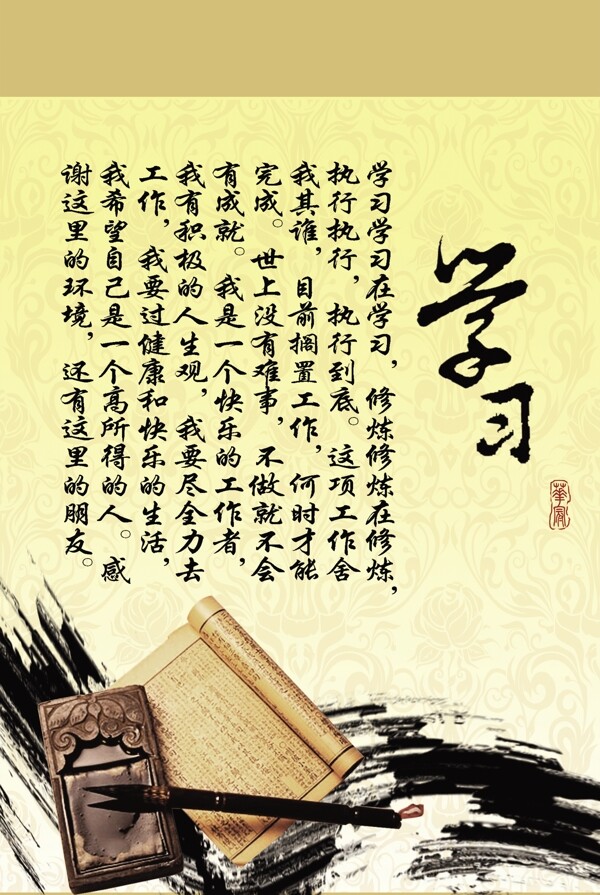 学习
学习学习在学习，修炼修炼在修炼，
执行执行，执行到底。这项工作舍
我其谁，目前搁置工作，何时才能
完成。世上没有难事，不做就不会
有成就。我是一个快乐的工作者，
我有积极的人生观，我要尽全力去
工作，我要过健康和快乐的生活，
我希望自己是一个高所得的人。感
谢这里的环境，还有这里的朋友。